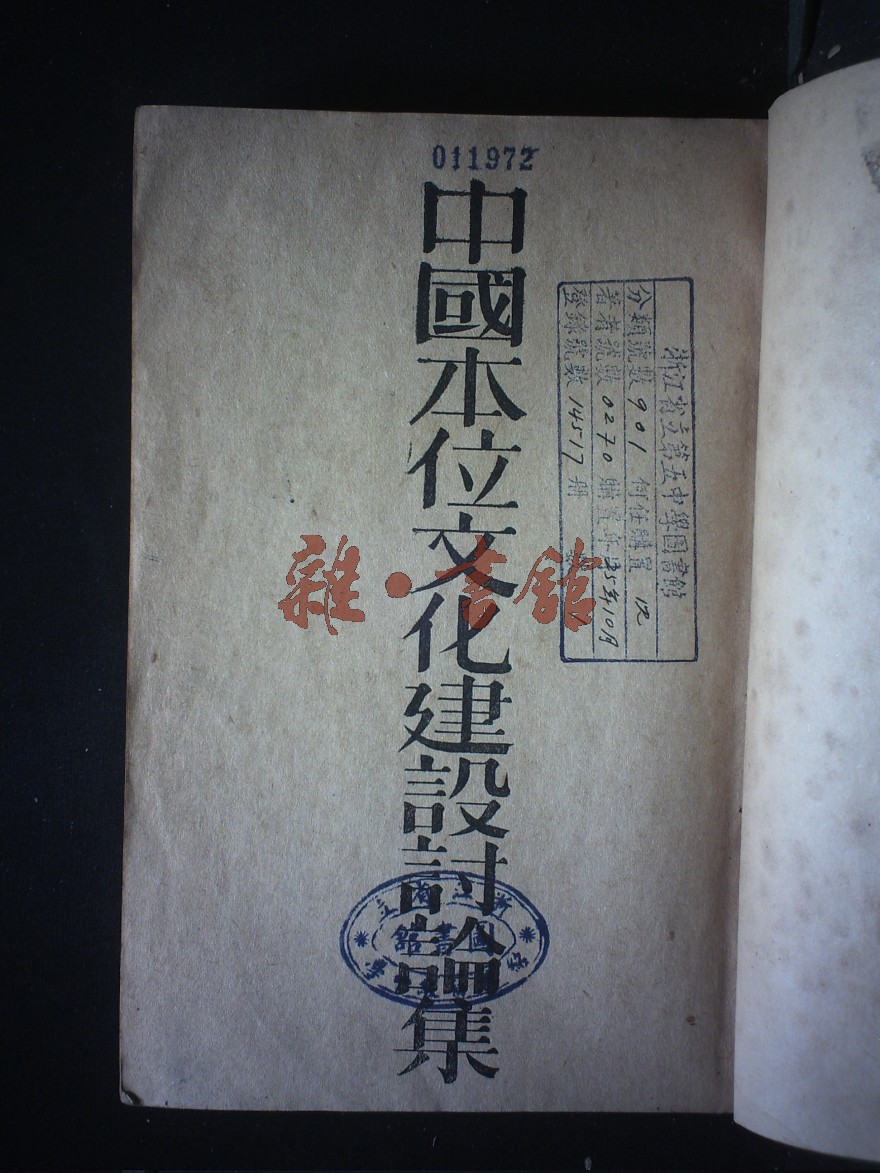 011972
中國本位文化建設討論集
浙江省立第五中學圖書館
分類號數 901 何任購置
著者號數 0270 購置年 25年10月
登錄號數 14517 冊
雜·書館
浙江省立
圖書館